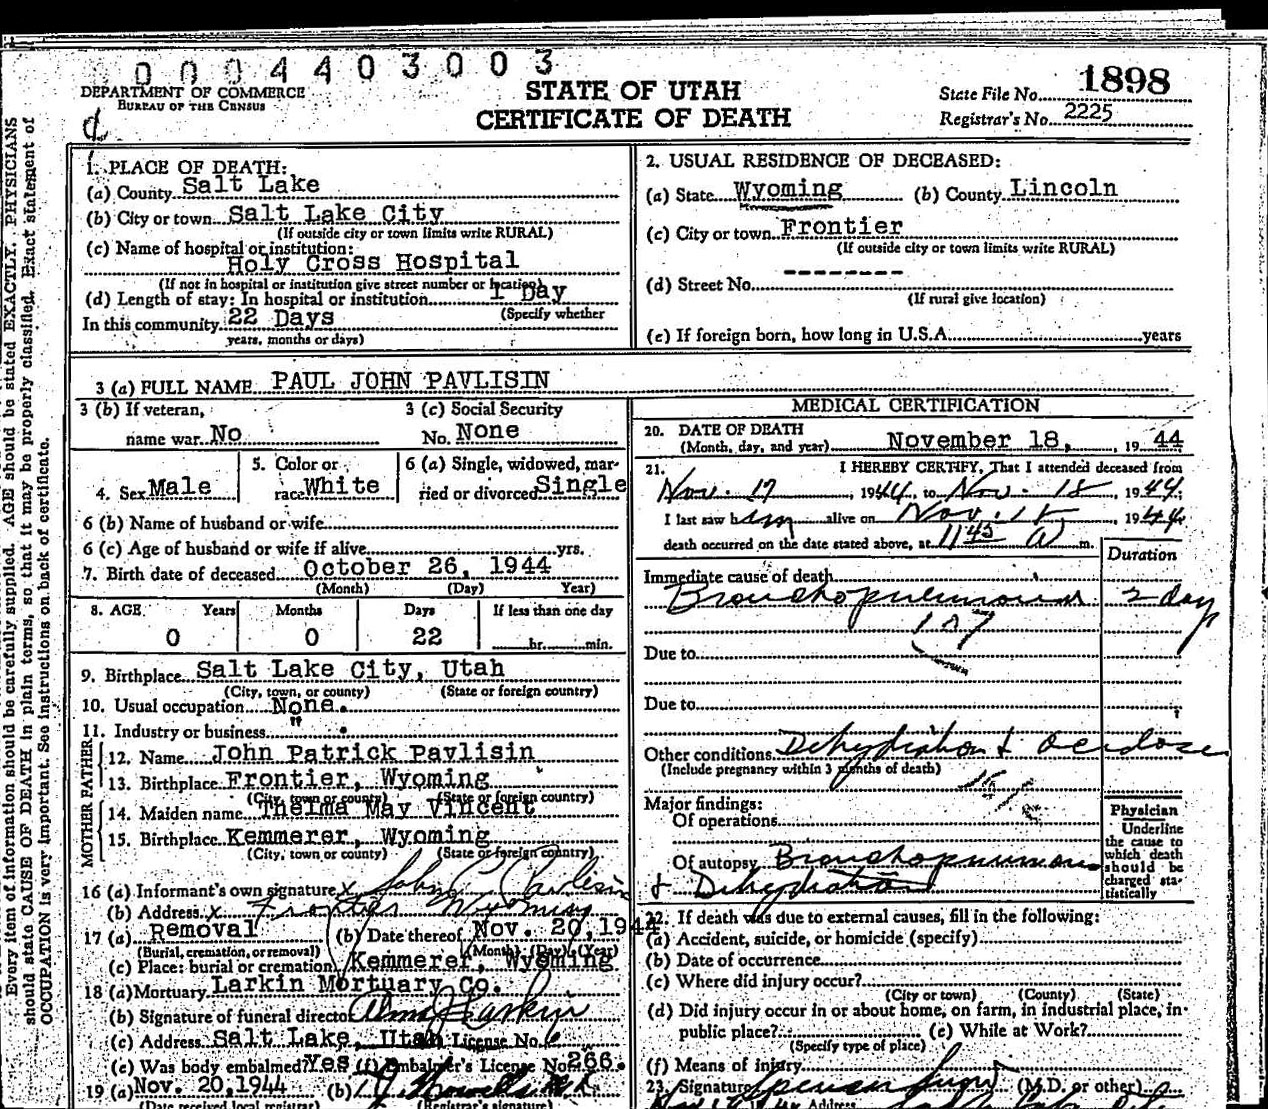 0 0 0 4 4 0 3 0 0 3
DEPARTMENT OF COMMERCE
BUREAU OF THE CENSUS
STATE OF UTAH
CERTIFICATE OF DEATH
State File No. 1898
Registrar's No. 2225
Every item of information should be carefully supplied. AGE should be stated EXACTLY. PHYSICIANS
should state CAUSE OF DEATH in plain terms, so that it may be properly classified. Exact statement of
OCCUPATION is very important. See instructions on back of certificate.
1. PLACE OF DEATH:
(a) County Salt Lake
(b) City or town Salt Lake City
(If outside city or town limits write RURAL)
(c) Name of hospital or institution:
Holy Cross Hospital
(If not in hospital or institution give street number or location)
(d) Length of stay: In hospital or institution 1 Day
(Specify whether
In this community 22 Days
years, months or days)
2. USUAL RESIDENCE OF DECEASED:
(a) State Wyoming (b) County Lincoln
(c) City or town Frontier
(If outside city or town limits write RURAL)
(d) Street No. --------
(If rural give location)
(e) If foreign born, how long in U.S.A. years
3 (a) FULL NAME PAUL JOHN PAVLISIN
3 (b) If veteran,
name war No
3 (c) Social Security
No. None
4. Sex Male
5. Color or
race White
6 (a) Single, widowed, mar-
ried or divorced Single
6 (b) Name of husband or wife
6 (c) Age of husband or wife if alive yrs.
7. Birth date of deceased October 26, 1944
(Month) (Day) Year)
8. AGE Years Months Days If less than one day
0 0 22 hr. min.
9. Birthplace Salt Lake City, Utah
(City, town, or county) (State or foreign country)
10. Usual occupation None.
11. Industry or business " .
FATHER
12. Name John Patrick Pavlisin
13. Birthplace Frontier, Wyoming
(City, town or county) (State or foreign country)
MOTHER
14. Maiden name Thelma May Vincent
15. Birthplace Kemmerer, Wyoming
(City, town or county) (State or foreign country)
16 (a) Informant's own signature x John P. Pavlisin
(b) Address x Frontier Wyoming
17 (a) Removal (b) Date thereof Nov. 20, 1944
(Burial, cremation, or removal) (Month) (Day) (Year)
(c) Place: burial or cremation Kemmerer, Wyoming
18 (a) Mortuary Larkin Mortuary Co.
(b) Signature of funeral director Alma Larkin
(c) Address Salt Lake, Utah License No. 6
(e) Was body embalmed? Yes (f) Embalmer's License No. 266.
19 (a) Nov. 20, 1944 (b)
(Date received local registrar) (Registrar's signature)
MEDICAL CERTIFICATION
20. DATE OF DEATH
(Month, day, and year) November 18, 19 44
21. I HEREBY CERTIFY, That I attended deceased from
Nov. 17, 1944, to Nov. 18, 1944;
I last saw him alive on Nov. 18, 1944
death occurred on the date stated above, at 11 45 a m.
Duration
Immediate cause of death
Bronchopneumonia 2 days
107
Due to
Due to
Other conditions Dehydration & acidosis
(Include pregnancy within 3 months of death)
Major findings:
Of operations
Of autopsy Bronchopneumonia
& Dehydration
Physician
Underline
the cause to
which death
should be
charged sta-
tistically
22. If death was due to external causes, fill in the following:
(a) Accident, suicide, or homicide (specify)
(b) Date of occurrence
(c) Where did injury occur?
(City or town) (County) (State)
(d) Did injury occur in or about home, on farm, in industrial place, in
public place? (e) While at Work?
(Specify type of place)
(f) Means of injury
23. Signature (M.D. or other)
Address